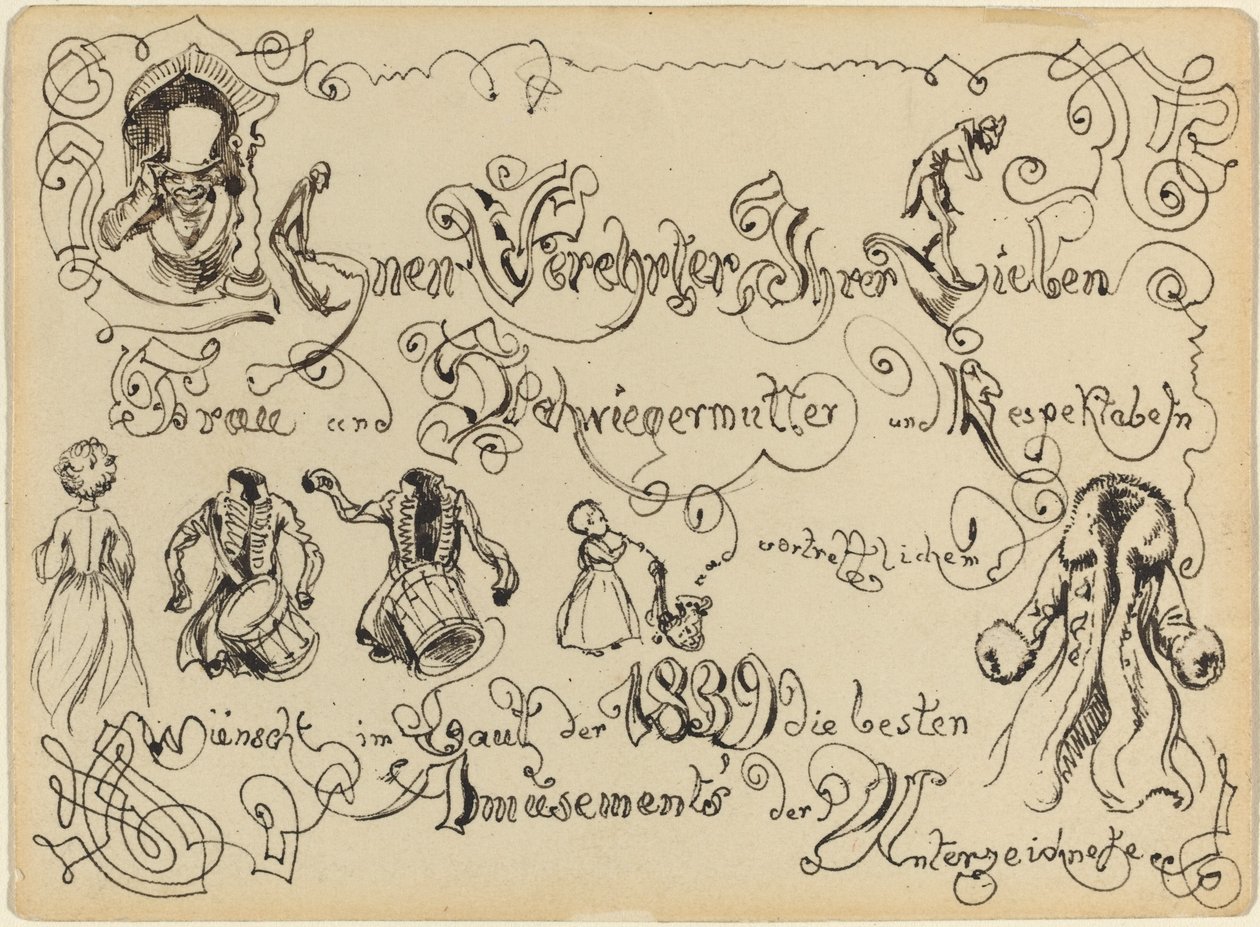 Ihnen Verehrter, Ihrer Lieben
Frau und Schwiegermutter und Respektabeln
vortrefflichem
Wünscht im Lauf der 1839 die besten
Amusements' der Unterzeichnete